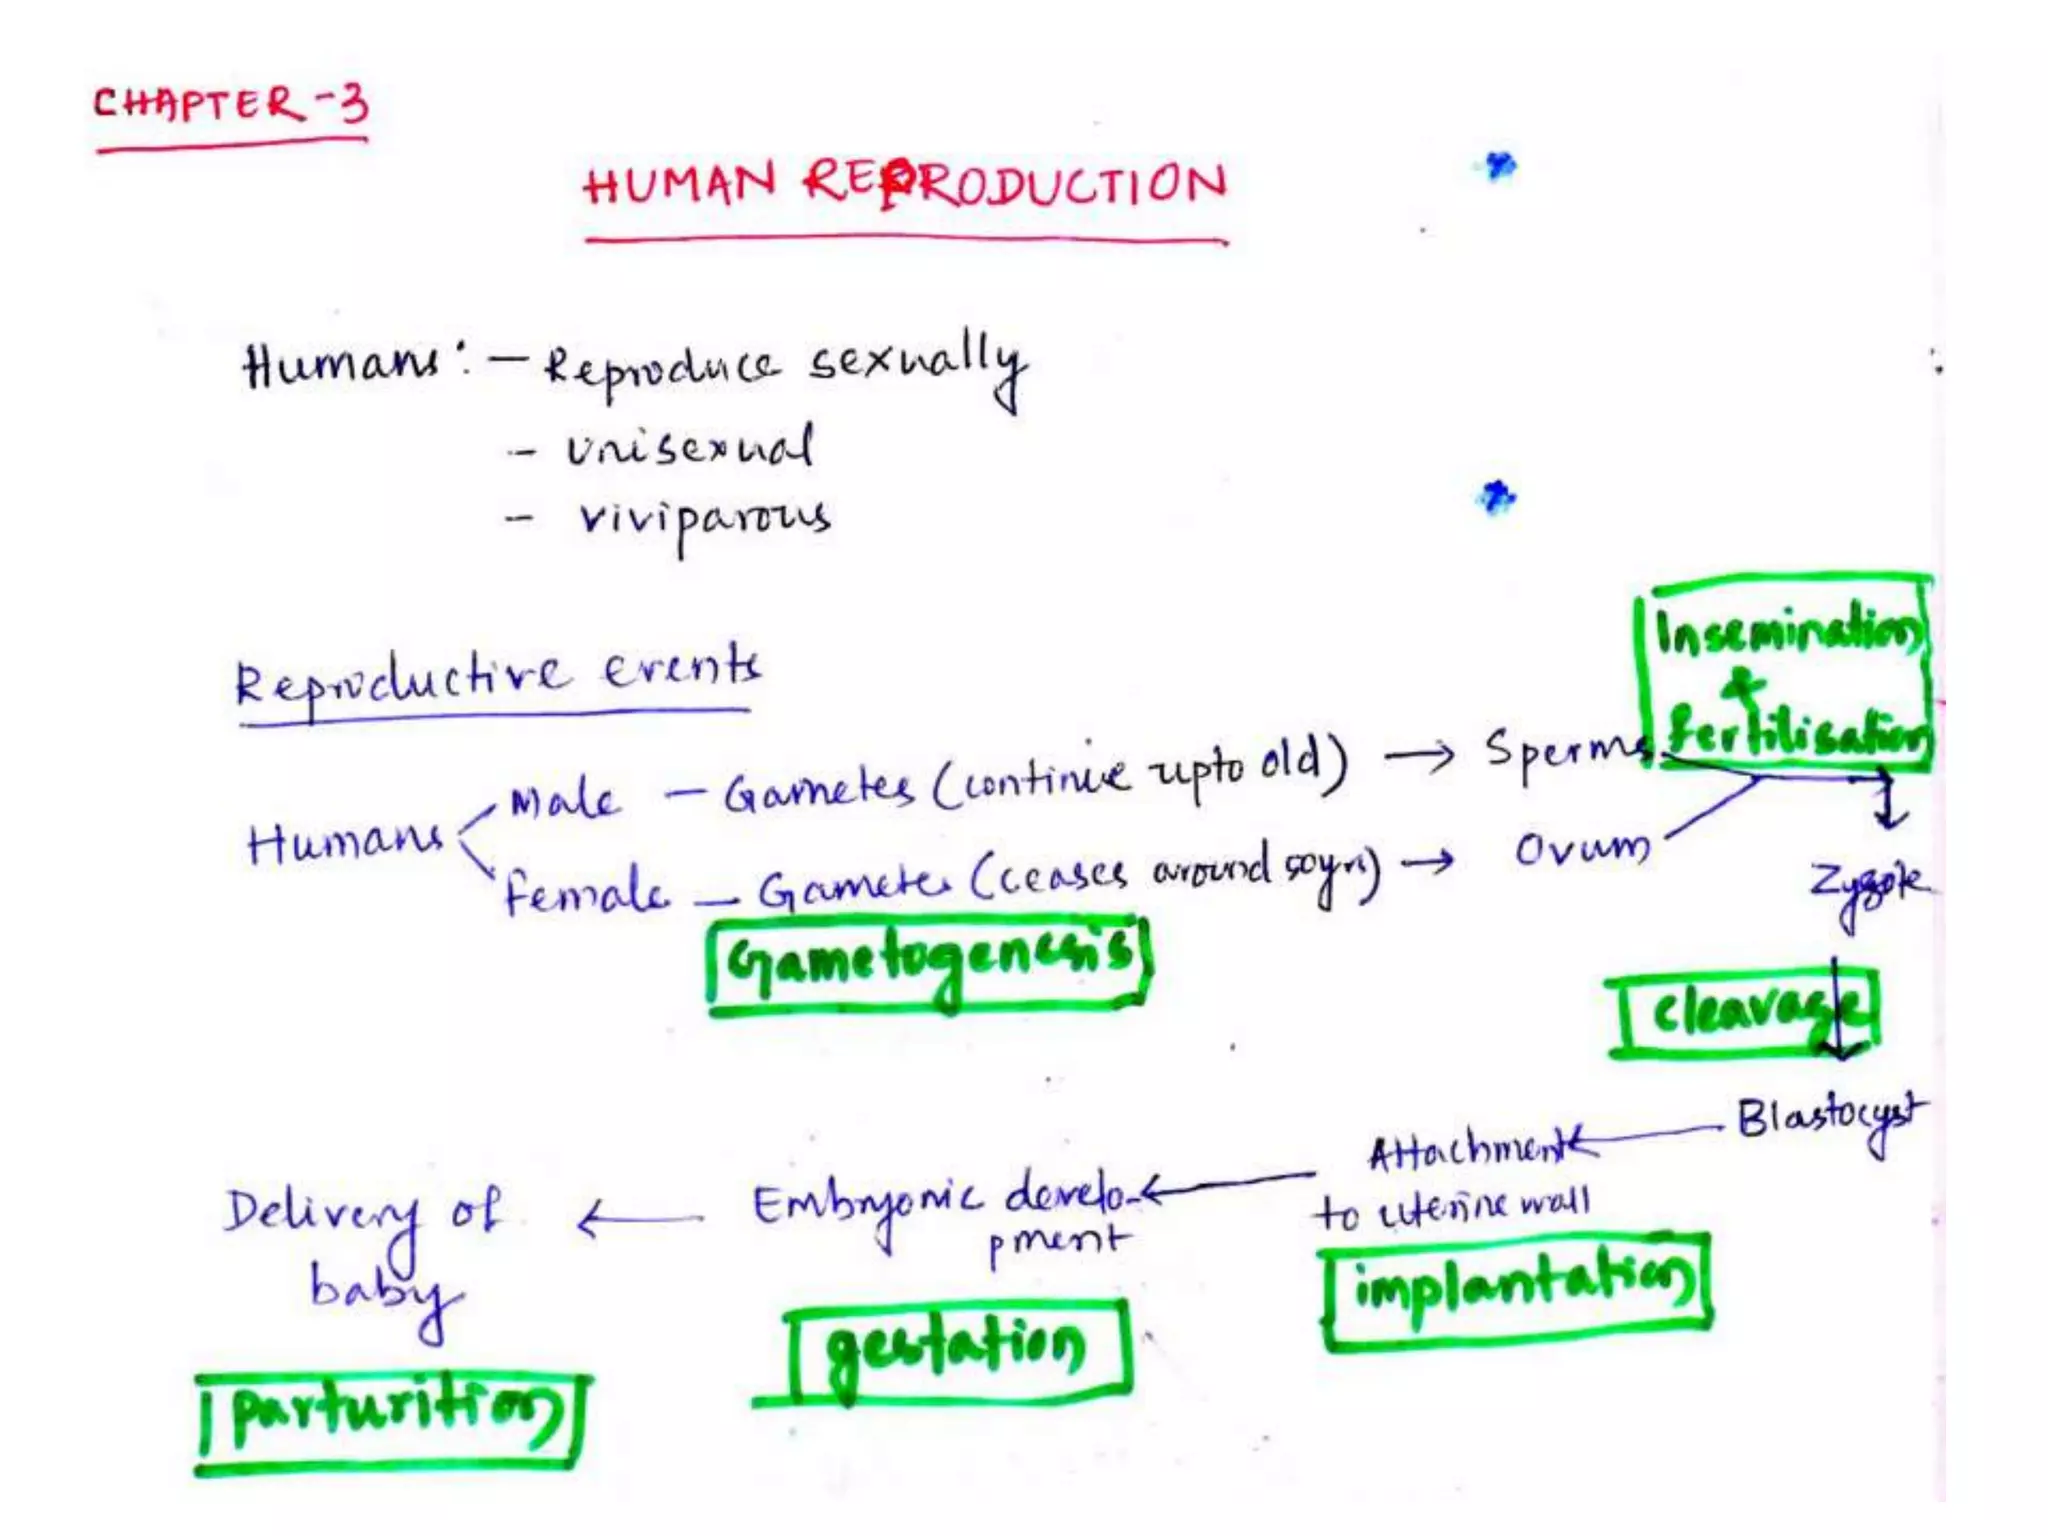 CHAPTER-3
HUMAN REPRODUCTION
Humans: - Reproduce sexually
- Unisexual
- viviparous
Reproductive events
Insemination
&
fertilisation
Humans
Male - Gametes (continue upto old) → Sperms
Female - Gametes (ceases around 50yrs) → Ovum
Zygote
Gametogenesis
cleavage
Blastocyst
Attachment
to uterine wall
implantation
Embryonic develo-
pment
gestation
Delivery of
baby
parturition